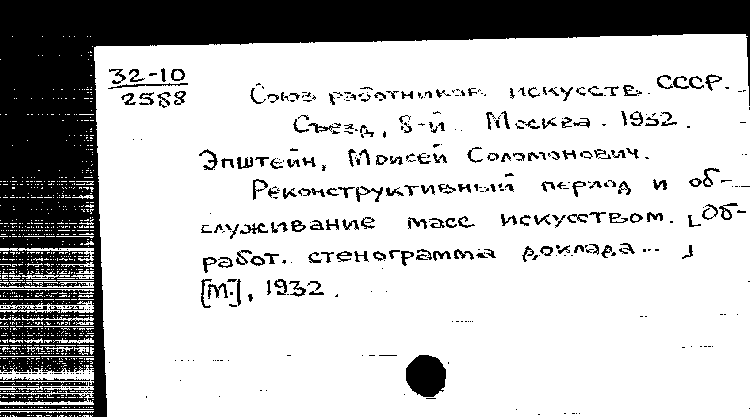 32-10
2588
Союз работников искусств СССР.
Съезд, 8-й. Москва. 1932.
Эпштейн, Моисей Соломонович.
Реконструктивный период и об-
служивание масс искусством. [Об-
работ. стенограмма доклада...]
[М.], 1932.